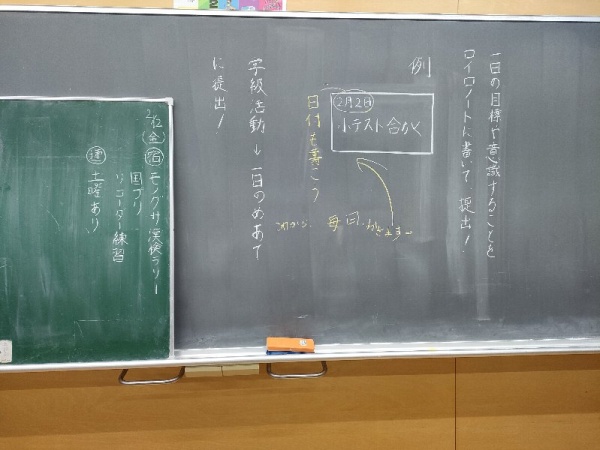 一日の目標や意識することを
ロイロノートに書いて、提出!
例
2月2日
小テスト合かく
日付も書こう
毎回
学級活動→一日のめあて
に提出!
2/12
(金)
宿 モノグサ漢検ラリー
国プリ
リコーダー練習
連 土曜あり